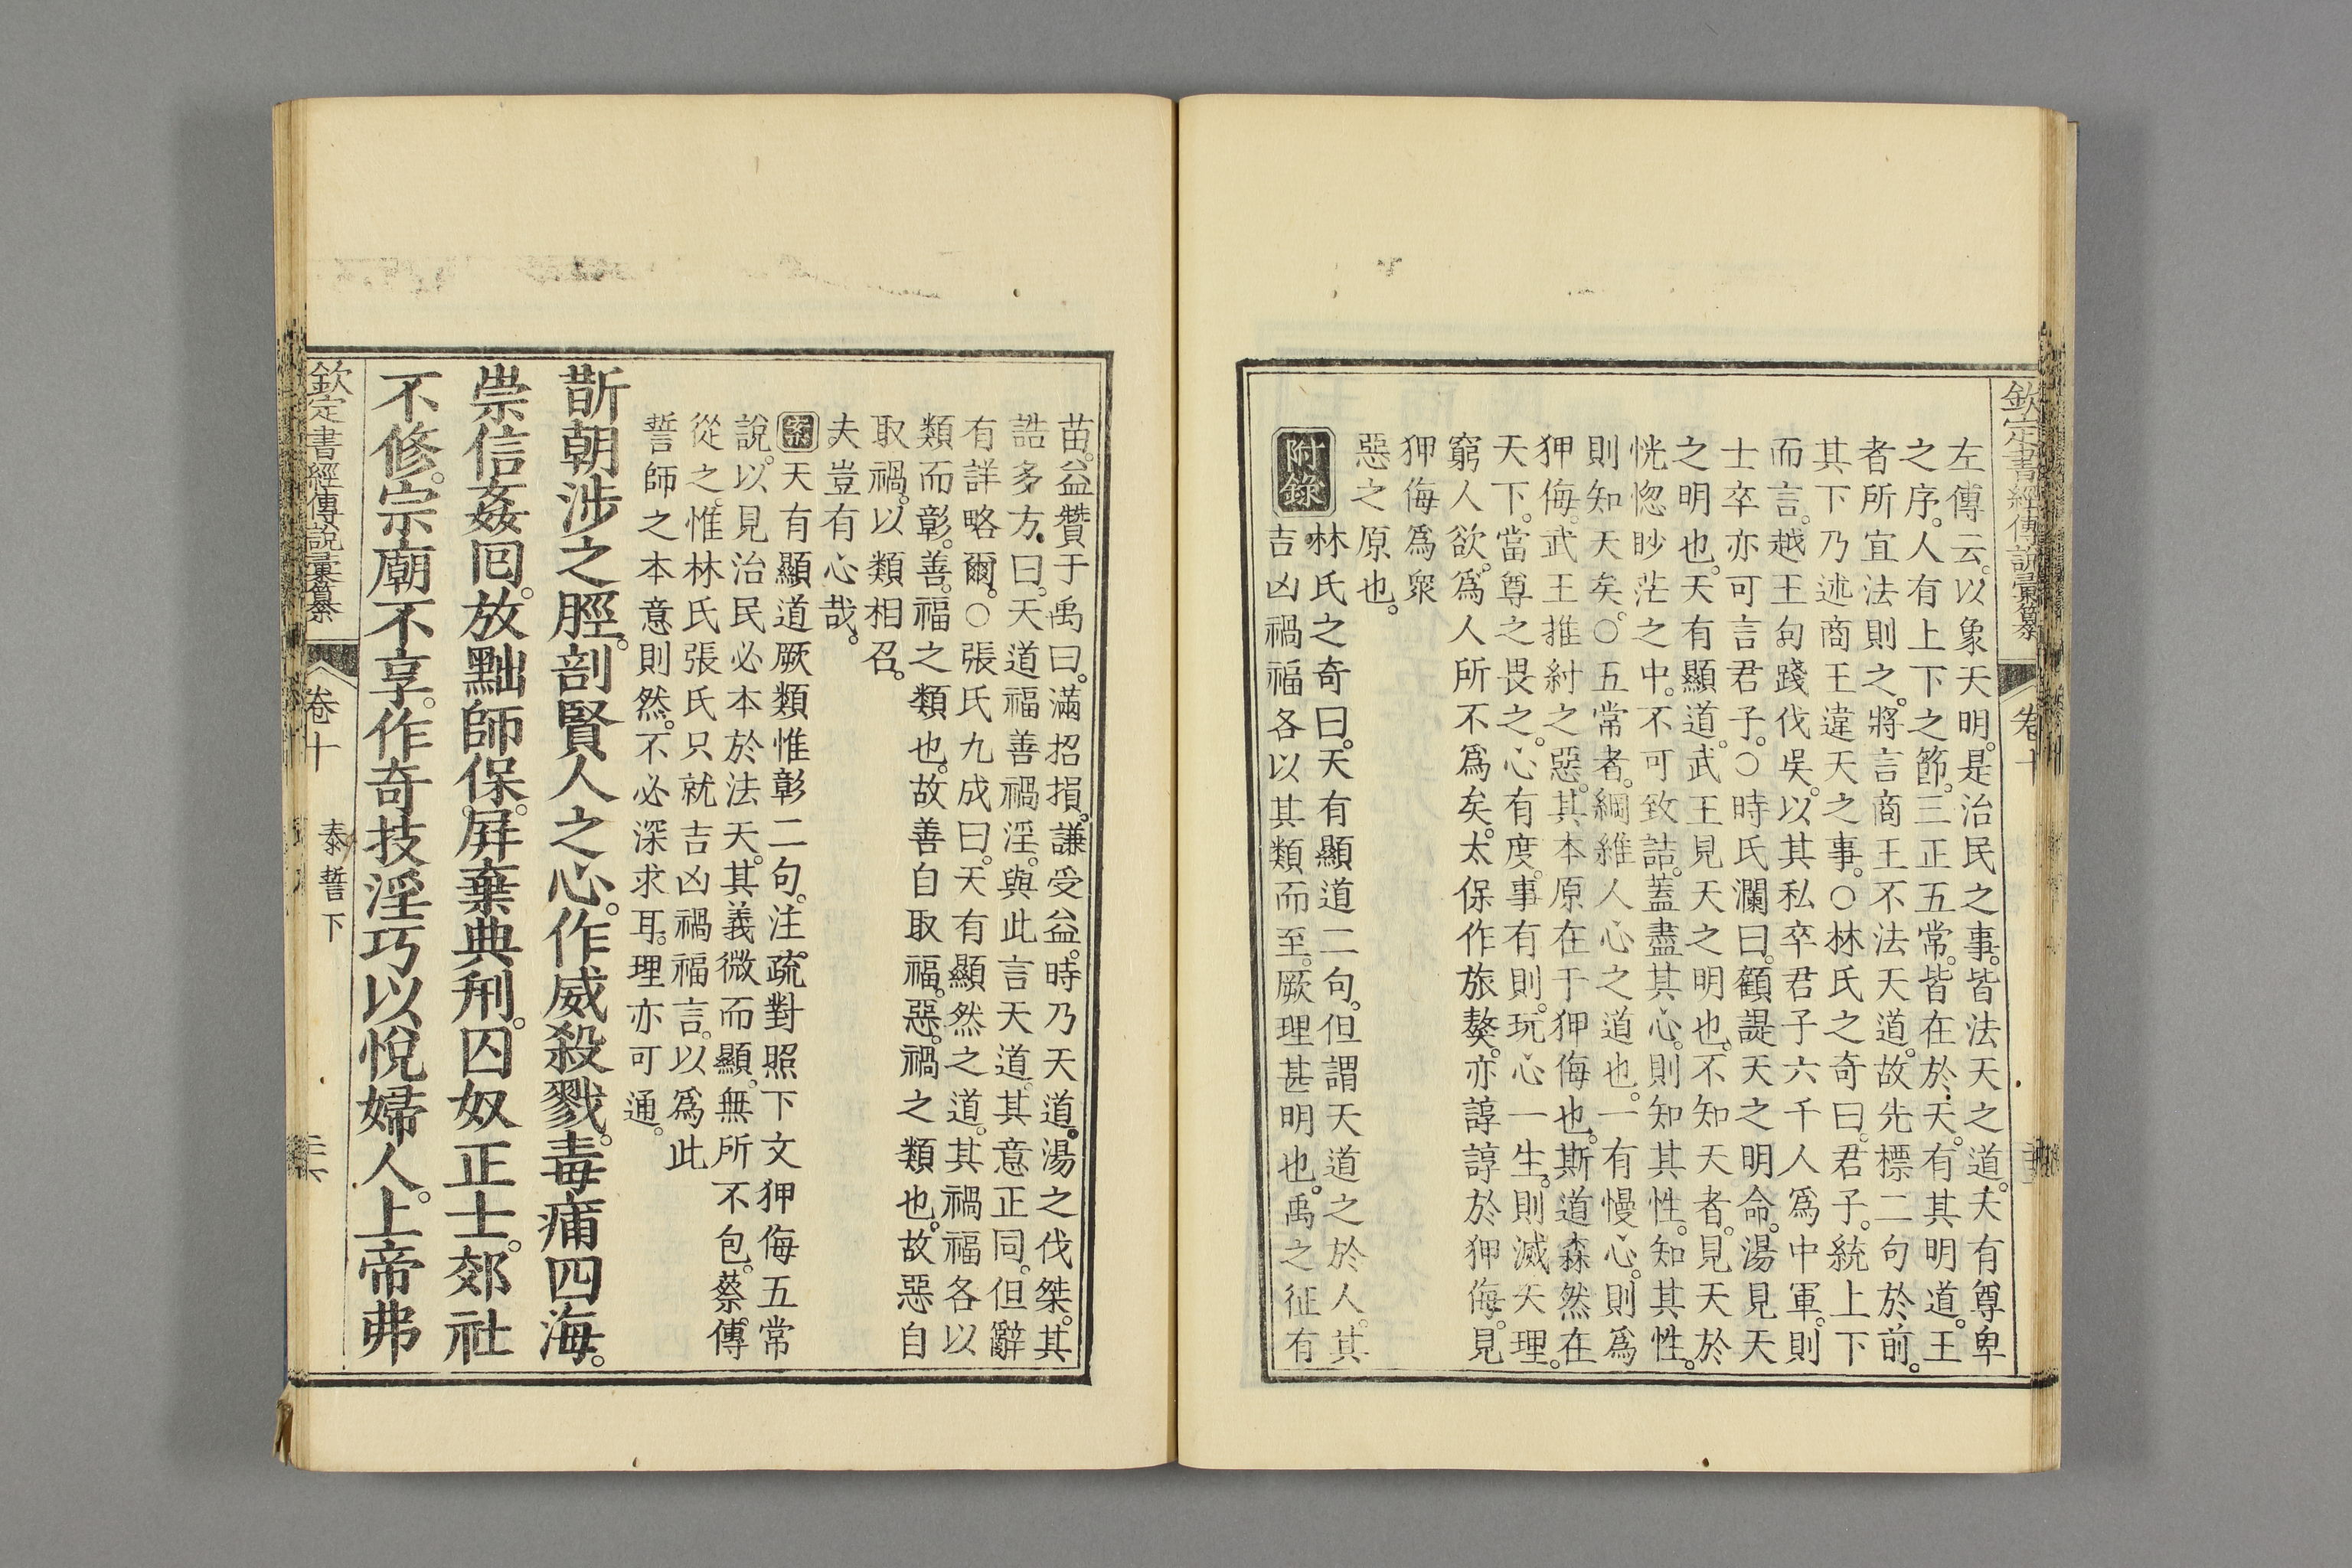 欽定書經傳說彙纂 卷十
左傳云。以象天明。是治民之事。皆法天之道。夫有尊卑
之序。人有上下之節。三正五常。皆在於天。有其明道。王
者所宜法則之。將言商王不法天道。故先標二句於前。
其下乃述商王違天之事。○林氏之奇曰。君子。統上下
而言。越王句踐伐吳。以其私卒君子六千人爲中軍。則
士卒亦可言君子。○時氏瀾曰。顧諟天之明命。湯見天
之明也。天有顯道。武王見天之明也。不知天者。見天於
恍惚眇茫之中。不可致詰。蓋盡其心。則知其性。知其性。
則知天矣。○五常者。綱維人心之道也。一有慢心。則爲
狎侮。武王推紂之惡。其本原在于狎侮也。斯道森然在
天下。當尊之畏之。心有度。事有則。玩心一生。則滅天理。
窮人欲。爲人所不爲矣。太保作旅獒。亦諄諄於狎侮。見
狎侮爲衆
惡之原也。
附錄
林氏之奇曰。天有顯道二句。但謂天道之於人。其
吉凶禍福各以其類而至。厥理甚明也。禹之征有
苗。益贊于禹曰。滿招損。謙受益。時乃天道。湯之伐桀。其
誥多方。曰。天道福善禍淫。與此言天道。其意正同。但辭
有詳略爾。○張氏九成曰。天有顯然之道。其禍福各以
類而彰。善。福之類也。故善自取福。惡。禍之類也。故惡自
取禍。以類相召。
夫豈有心哉。
案天有顯道厥類惟彰二句。注疏對照下文狎侮五常
說。以見治民必本於法天。其義微而顯。無所不包。蔡傳
從之。惟林氏張氏只就吉凶禍福言。以爲此
誓師之本意則然。不必深求耳。理亦可通。
斮朝涉之脛。剖賢人之心。作威殺戮。毒痡四海。
崇信姦回。放黜師保。屏棄典刑。囚奴正士。郊社
不修。宗廟不享。作奇技淫巧以悅婦人。上帝弗
欽定書經傳說彙纂 卷十 泰誓下